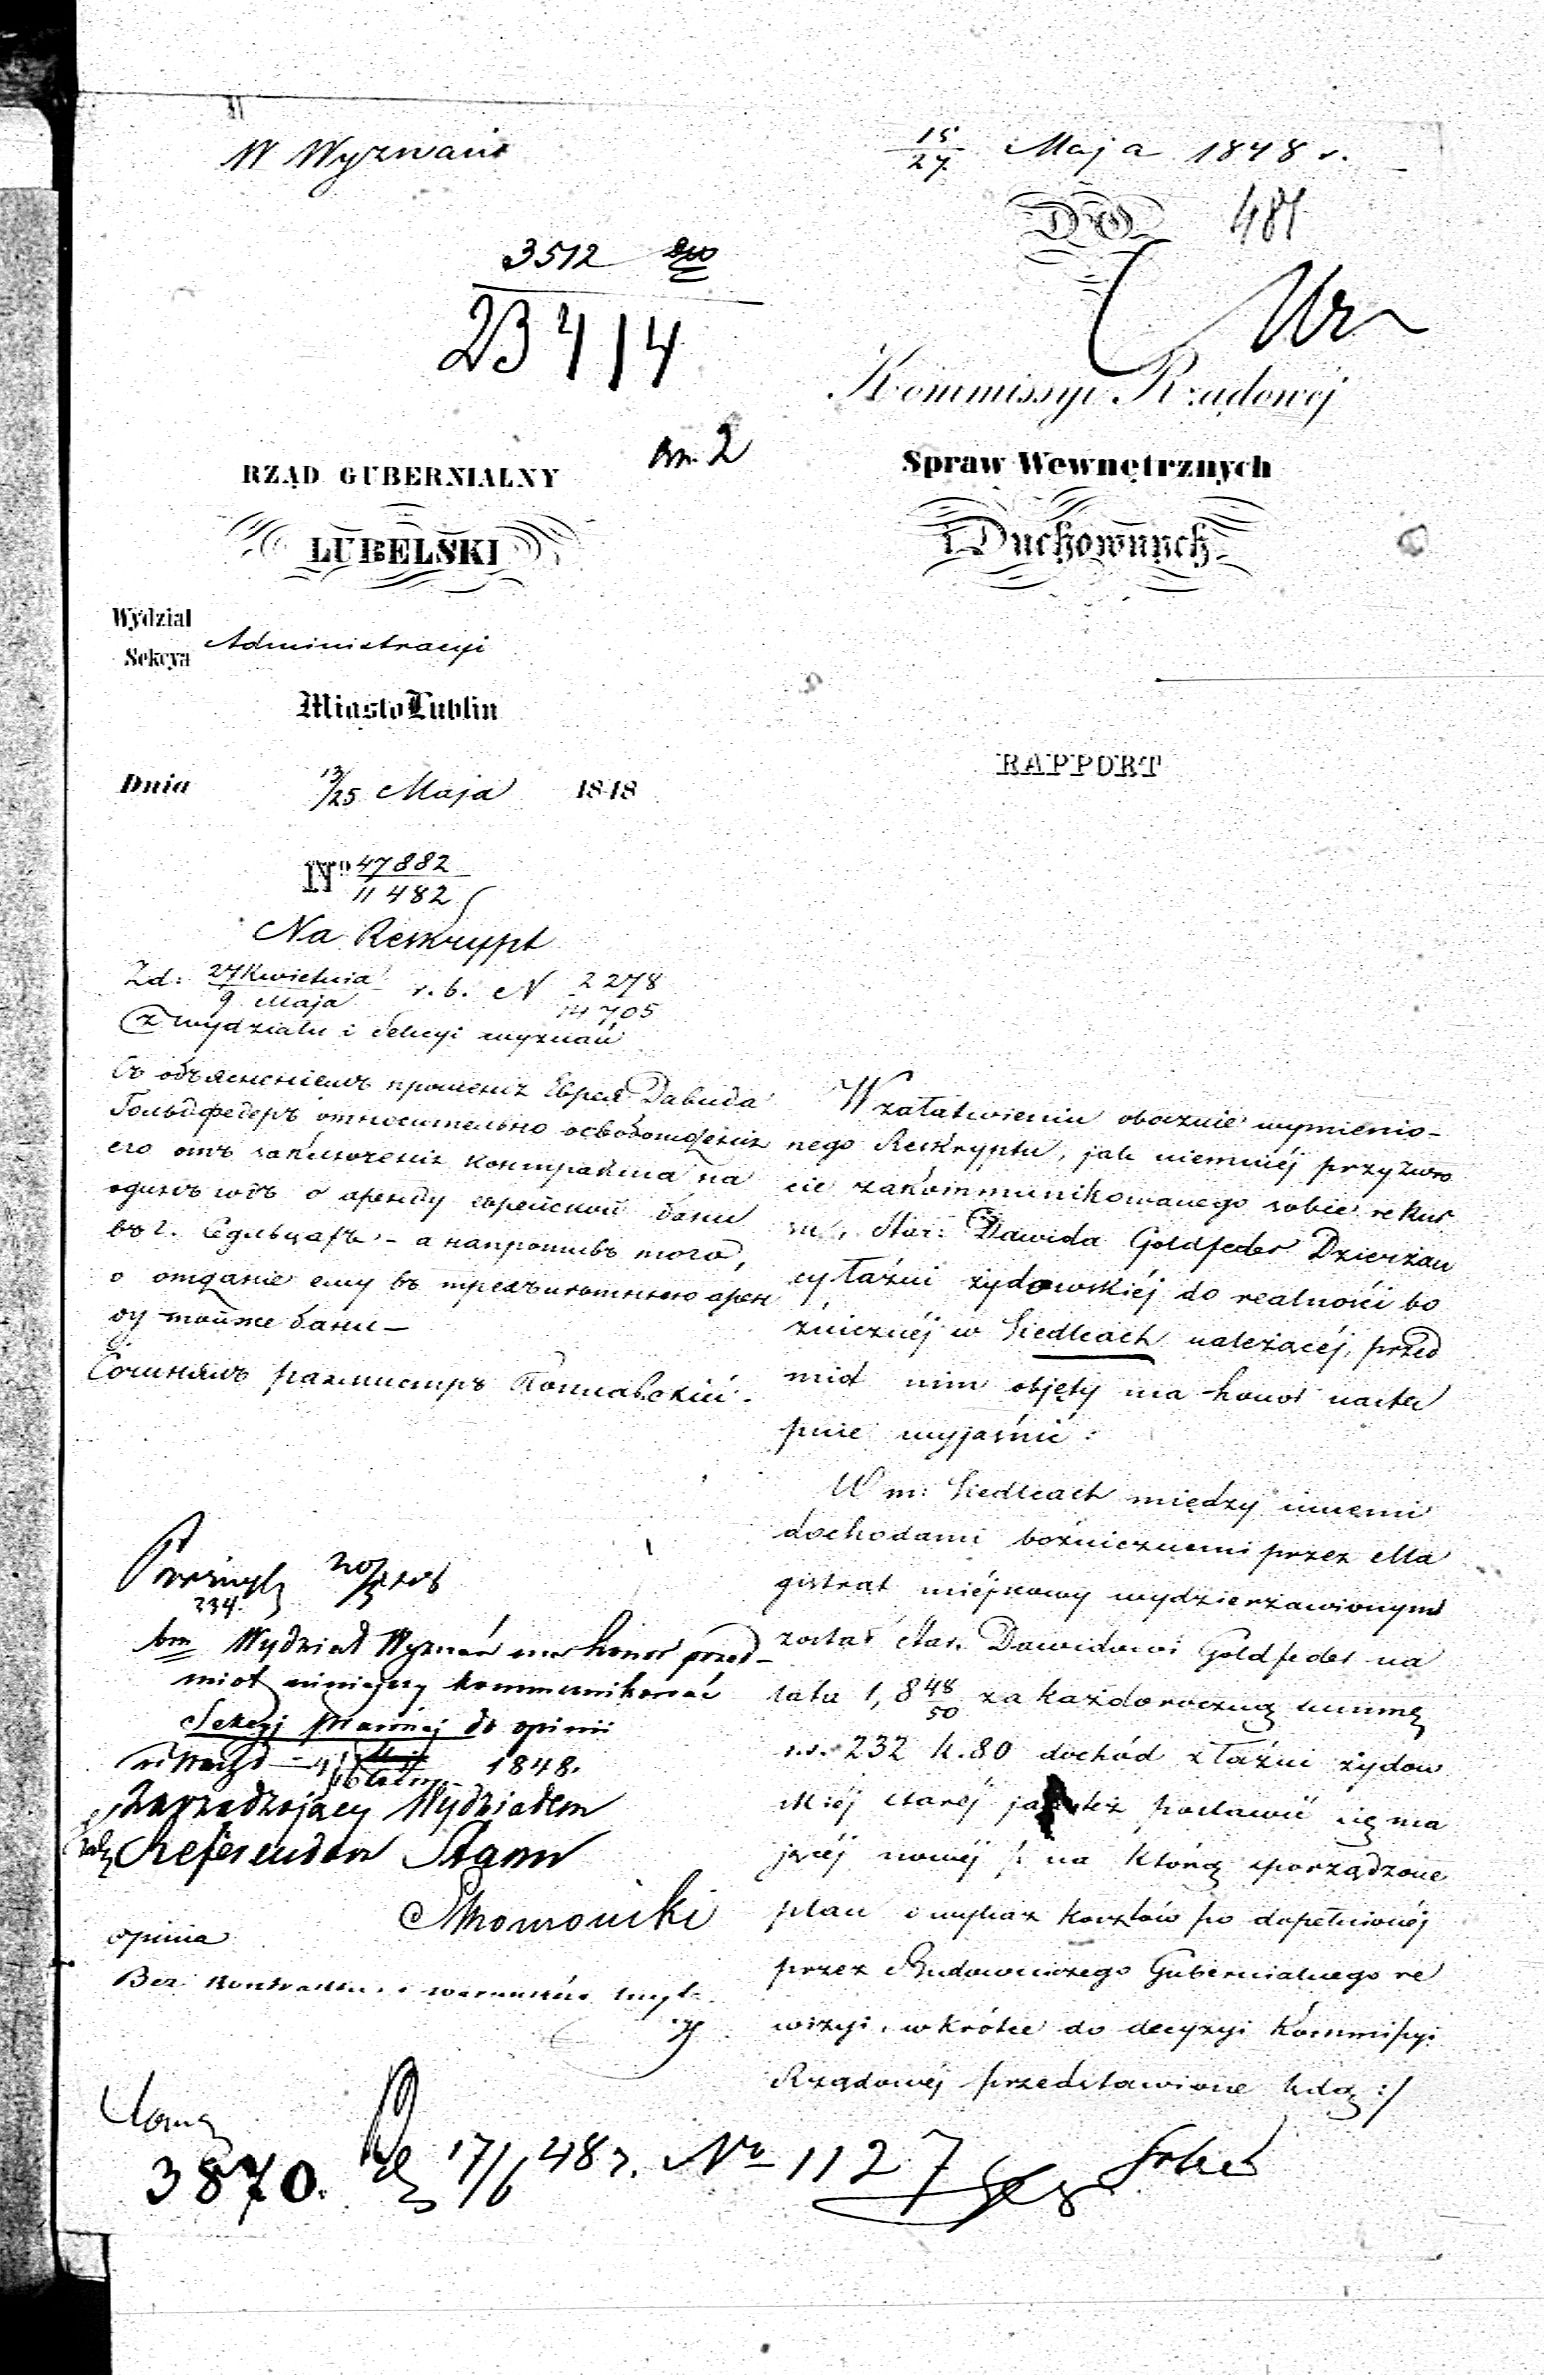 W Wyznań
15/27 Maja 1848 r.
DO
481
3512
23414
Kommissyi Rządowéj
Spraw Wewnętrznych
i Duchownych
RZĄD GUBERNIALNY
LUBELSKI
Wydział
Sekcya
Administracyi
Miasto Lublin
Dnia 13/25 Maja 1848
RAPPORT
No 47882/11482
Na Reskrypt
Zd: 27 Kwietnia/9 Maja r. b. N 2278/14705
z wydziału i Sekcyi wyznań
Съ объясненіемъ прошенія Еврея Давида
Гольдфедеръ относительно освобожденія
его отъ заключенія контракта на
одинъ годъ о аренду еврейской бани
въ г. Седльцахъ - а напротивъ того,
о отдачіе ему въ трехълѣтнюю арен
ду тойже бани —
Сочинялъ
W załatwieniu obocznie wymienio-
nego Reskryptu, jak niemniéj przy zwro
cie zakommunikowanego sobie rekur
su, Star: Dawida Goldfeder Dzierżaw
cy łaźni żydowskiéj do realności bo
żnicznéj w Siedlcach należącéj, przed
miot nim objęty ma honor nastę
pnie wyjaśnić:
W m: Siedlcach między innemi
dochodami bożnicznemi przez Ma
gistrat miéjscowy wydzierżawionym
został Star. Dawidowi Goldfeder na
lata 1,8 48/50 za każdoroczną summę
r.s. 232 k. 80 dochód z łaźni żydow
skiéj staréj jak też postawić się ma
jącéj nowéj /: na którą sporządzone
plan i wykaz kosztów po dopełnionéj
przez Budowniczego Gubernialnego re
wizyi, wkrótce do decyzyi Kommissyi
Rządowéj przedstawione będą :/
234.
bm Wydział Wyznań ma honor przed-
miot niniejszy kommunikować
Sekcyi Prawnéj do opinii
1848.
Zarządzający Wydziałem
Referendarz Stanu
opinia
Bez kontraktu i warunków
3870.
17/6 48 r. No 1127